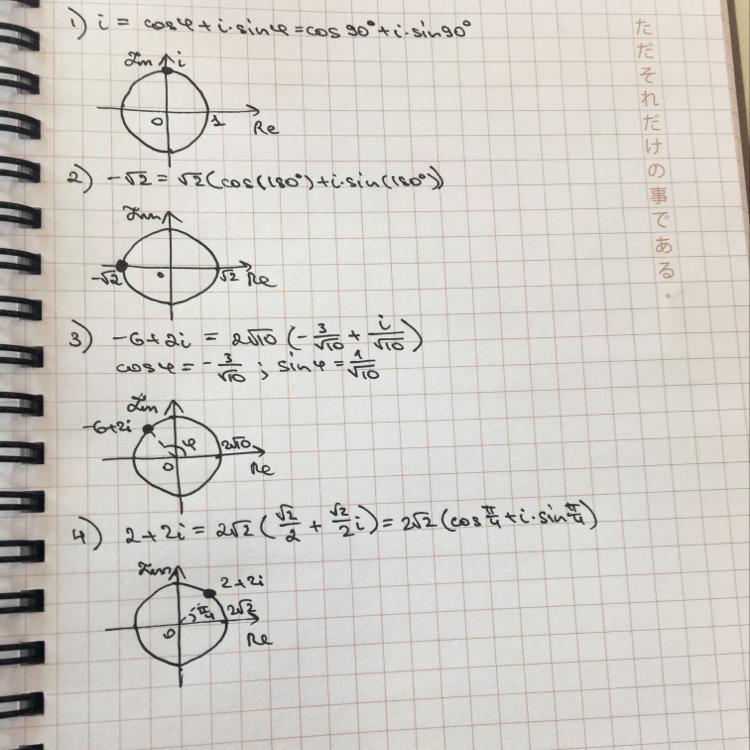 1) i = cosφ + i·sinφ = cos 90° + i·sin 90°
Im i
0 1 Re
2) -√2 = √2 (cos(180°) + i·sin(180°))
Im
-√2 0 √2 Re
3) -6+2i = 2√10 (-3/√10 + i/√10)
cosφ = -3/√10 ; sinφ = 1/√10
Im
-6+2i φ 2√10
0 Re
4) 2+2i = 2√2 (√2/2 + √2/2 i) = 2√2 (cos π/4 + i·sin π/4)
Im 2+2i
0 π/4 2√2
Re
ただそれだけの事である。